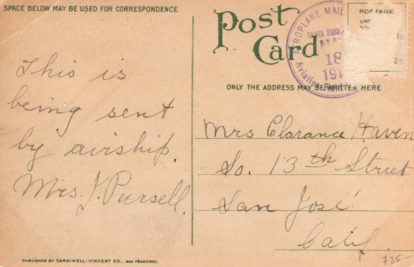 SPACE BELOW MAY BE USED FOR CORRESPONDENCE
Post
Card
AEROPLANE MAIL
18
191
Aviation
POSTAGE
ONLY THE ADDRESS MAY BE WRITTEN HERE
This is
being sent
by airship.
Mrs. J. Pursell.
Mrs Clarance Haven
So. 13th Street
San José
Calif.
$75
PUBLISHED BY CARDINELL-VINCENT CO., SAN FRANCISCO.